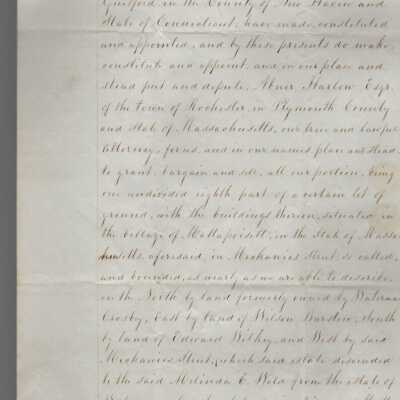 Guilford in the County of New Haven and
State of Connecticut, have made, constituted
and appointed, and by these presents do make,
constitute and appoint, and in our place and
stead put and depute, Abner Harlow Esqr.
of the town of Rochester, in Plymouth County
and State of Massachusetts, our true and lawful
Attorney, for us, and in our names, place and stead
to grant, bargain and sell, all our portion, being
one undivided eighth part of a certain lot of
ground, with the buildings thereon, situated in
the village of Mattapoisett, in the State of Massa-
husetts aforesaid, in Mechanics Street so called,
and bounded, as nearly as we are able to describe,
on the North by land formerly owned by
Crosby, East by land of Wilson Barstow, South
by land of Edward and West by said
Mechanics Street, which said estate descended
to the said Melinda E. from the estate of